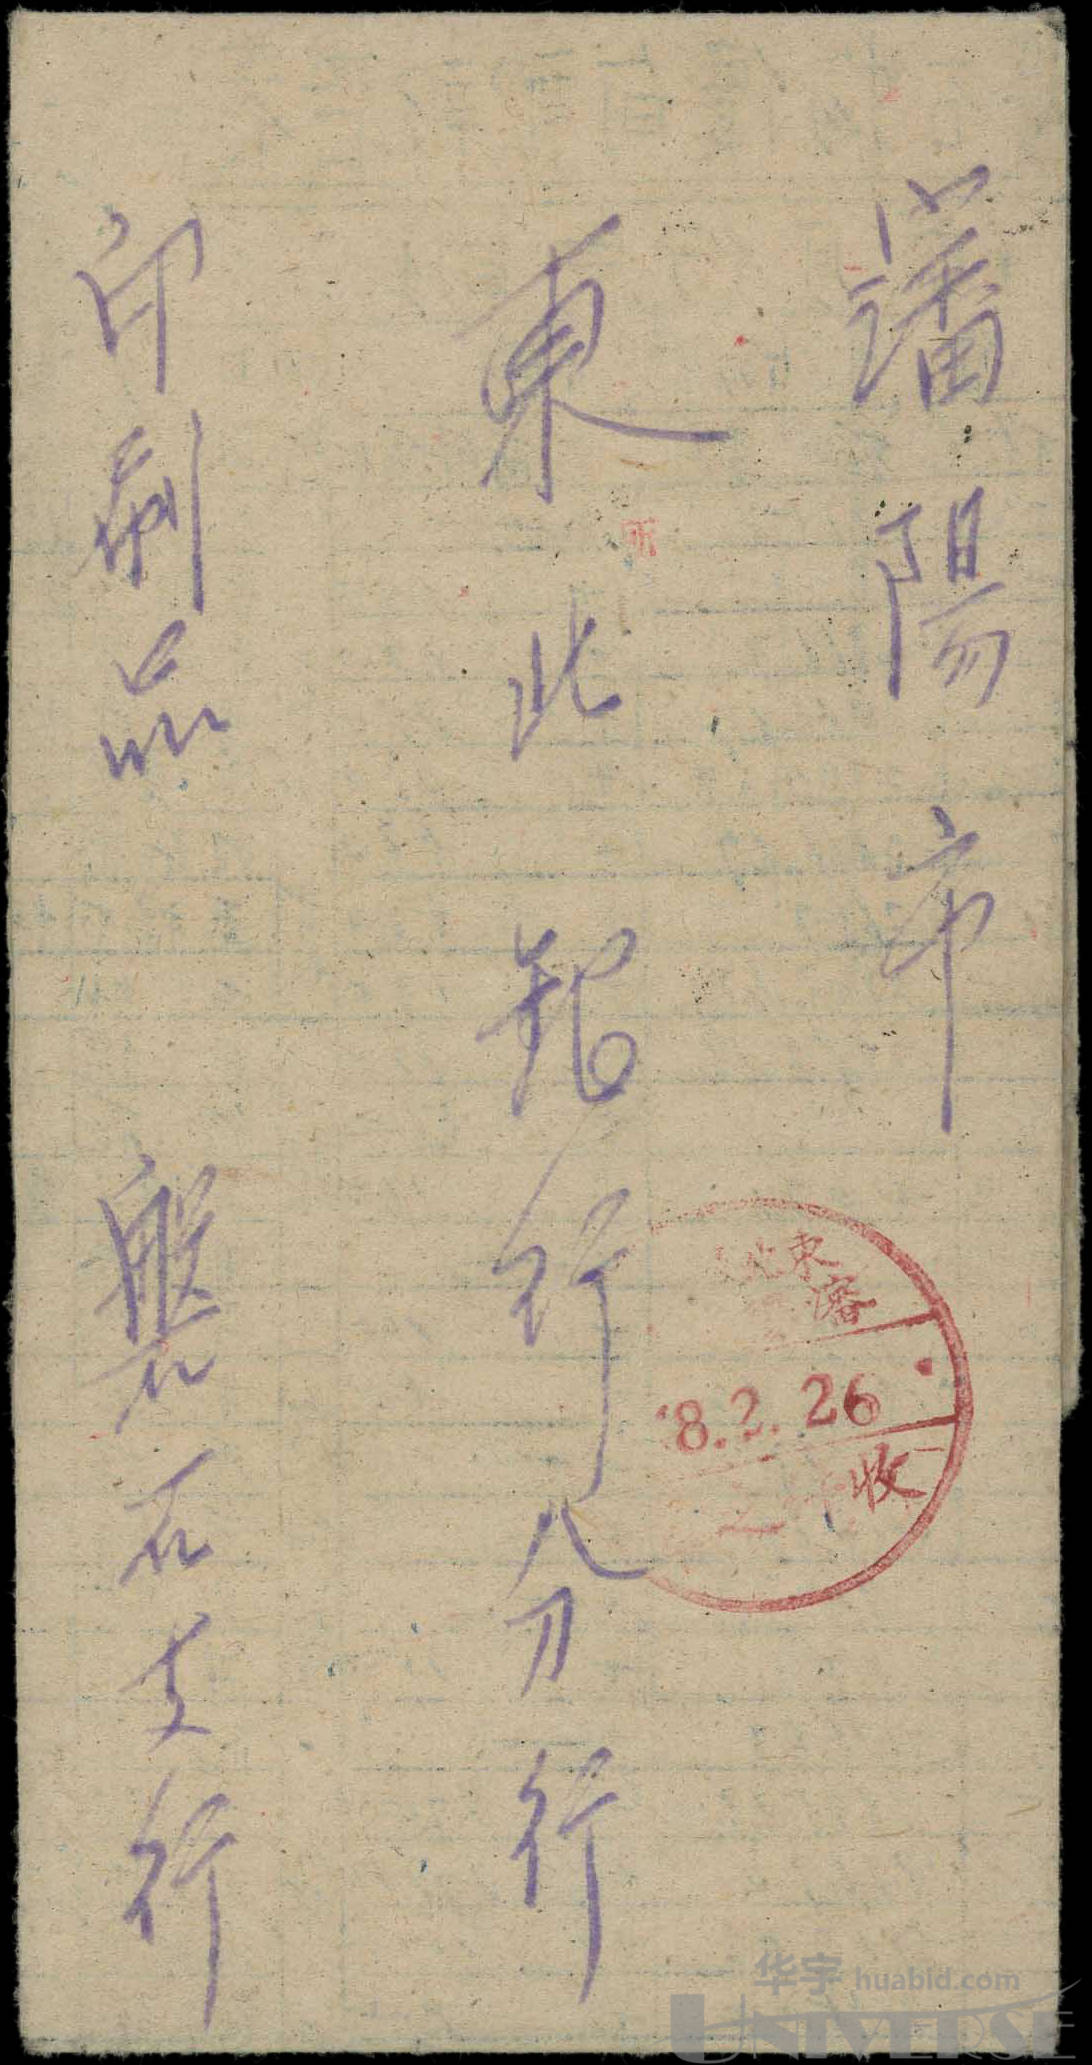 瀋陽市
東北銀行分行
印刷品 盤石支行
東北
瀋
8.2.26
收
华宇 huabid.com
UNIVERSE